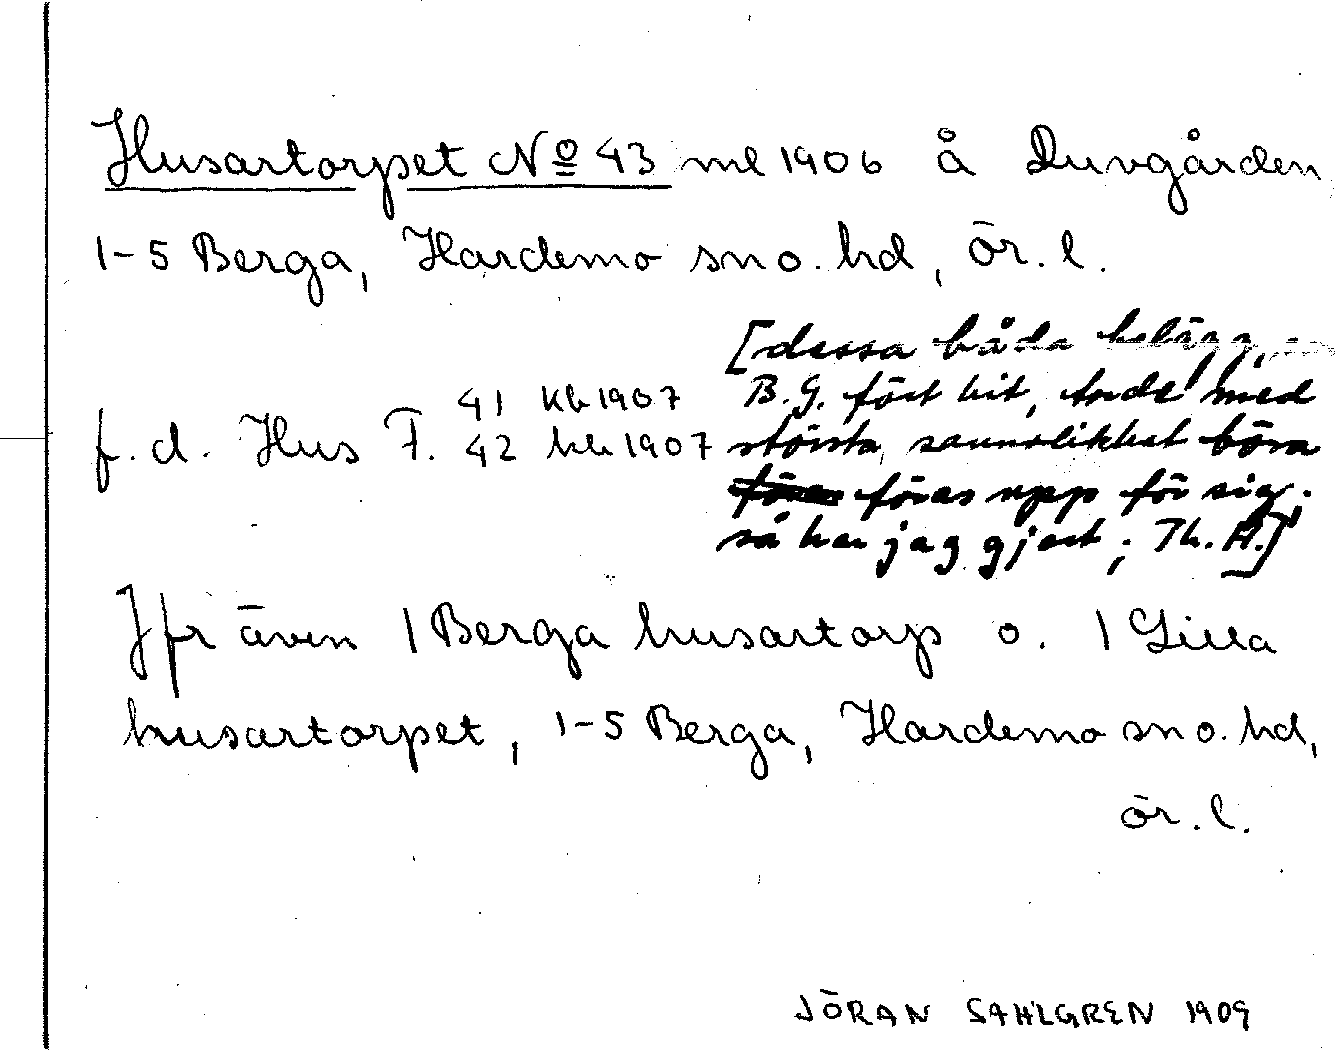 Husartorpet No 43 ml 1906 å Duvgården
1-5 Berga, Hardemo sn o. hd, ör. l.
[dessa båda belägg,
f. d. Hus F. 41 kb 1907 B.G. fört hit, torde med
42 kb 1907 största sannolikhet böra
föras upp för sig.
så har jag gjort; Th. A.]
Jfr även 1 Berga husartorp o. 1 Lilla
husartorpet, 1-5 Berga, Hardemo sn o. hd,
ör. l.
JÖRAN SAHLGREN 1909